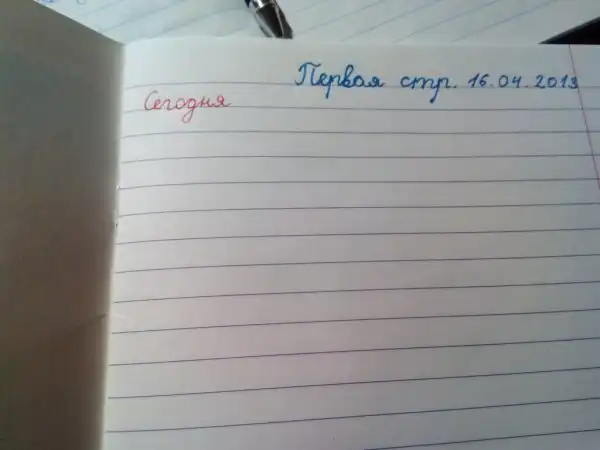 Первая стр. 16.04.2013
Сегодня